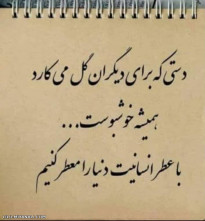 دستی که برای دیگران گل می کارد
همیشه خوشبوست...
با عطر انسانیت دنیا را معطر کنیم